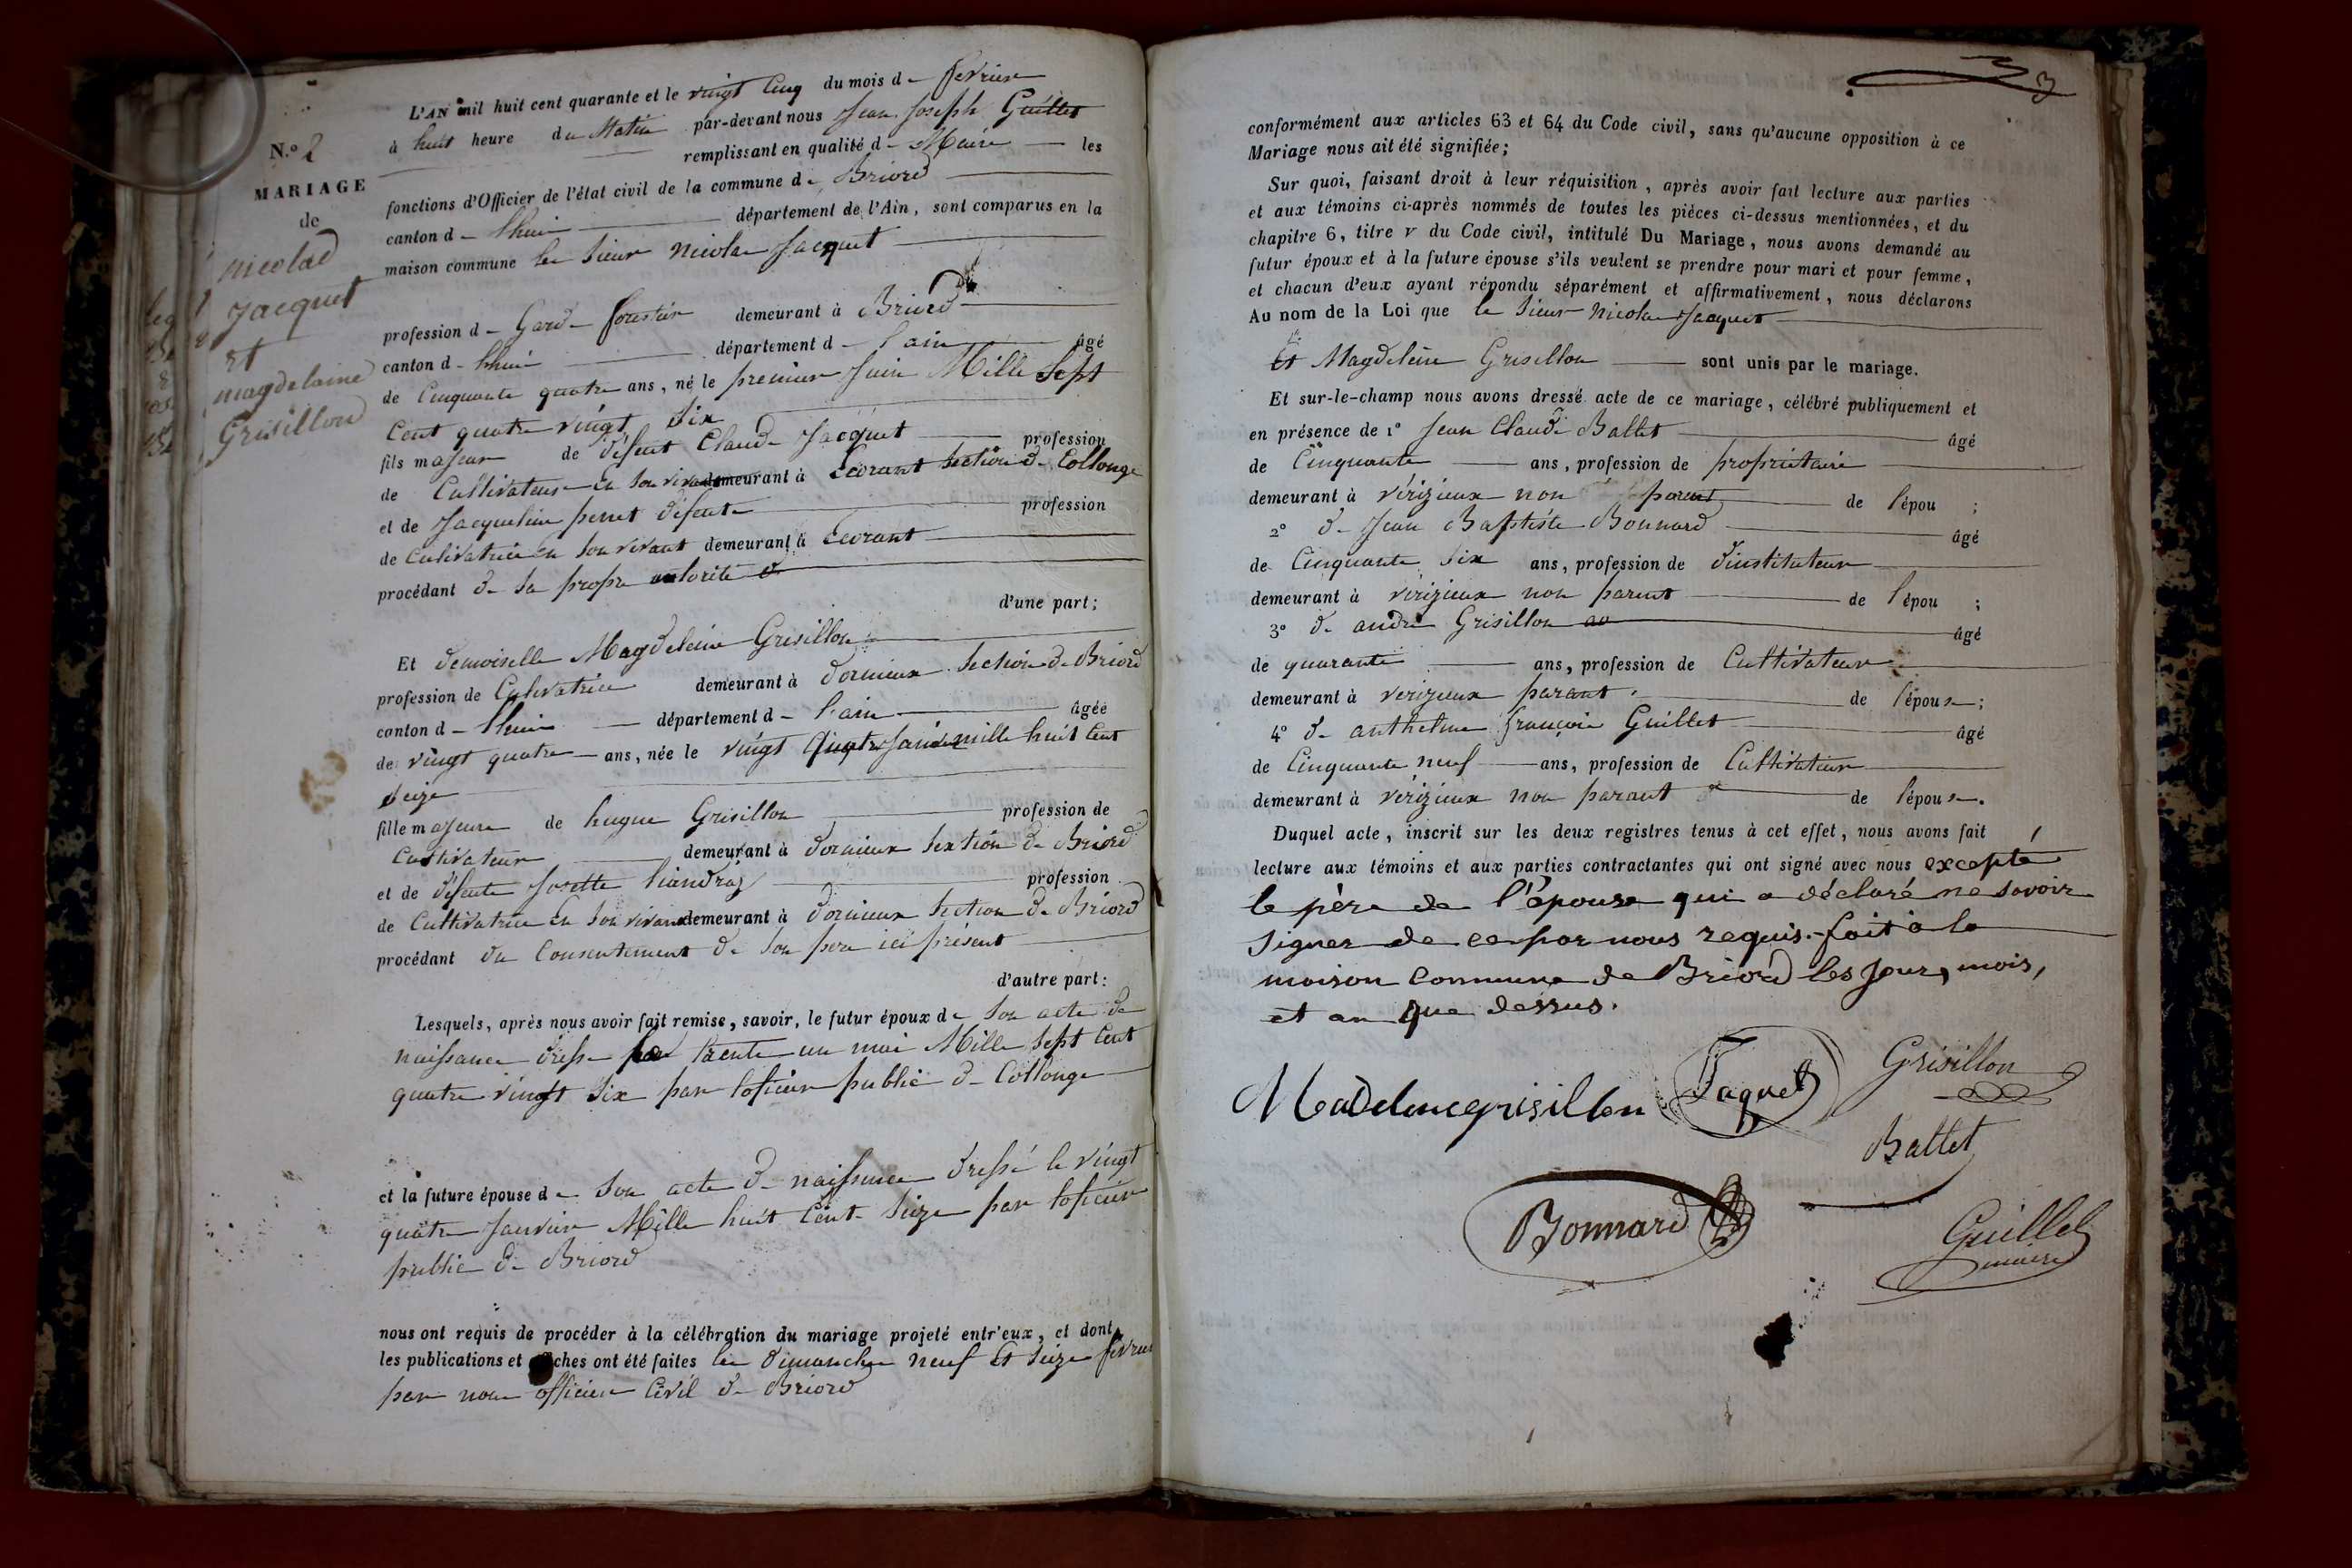 N.º 2
MARIAGE
de
nicolas
Jacquet
et
magdelaine
Grisillon
L'AN mil huit cent quarante et le vingt cinq du mois de fevrier
à huit heure du Matin par-devant nous Jean Joseph Guillet
remplissant en qualité de Maire les
fonctions d'Officier de l'état civil de la commune de Briord
canton de lhuis département de l'Ain, sont comparus en la
maison commune le Sieur nicolas Jacquet
profession de Garde forestier demeurant à Briord
canton de lhuis département de lain âgé
de Cinquante quatre ans, né le premier Juin Mille Sept
Cent quatre vingt Six
fils majeur de défunt Claude Jacquet profession
de Cultivateur en son vivant demeurant à Ecorant Section de Collonge
et de Jacqueline perret défunte profession
de Culivatrice en son vivant demeurant à Ecorant
procédant de sa propre autorité
d'une part;
Et demoiselle Magdeleine Grisillon
profession de Culivatrice demeurant à dornieux Section de Briord
canton de lhuis département de lain âgée
de vingt quatre ans, née le vingt quatre Janvier mille huit Cent
Seize
fille majeure de hugue Grisillon profession de
Cultivateur demeurant à dornieux Section de Briord
et de défunte Josette profession
de Cultivatrice en son vivant demeurant à dornieux Section de Briord
procédant du Consentement de son pere ici présent
d'autre part:
Lesquels, après nous avoir fait remise, savoir, le futur époux de son acte de
naissance dressé trente un mai Mille Sept Cent
quatre vingt Six par loficier public de Collonge
et la future épouse de son acte de naissance dressé le vingt
quatre Janvier Mille huit Cent Seize par loficier
public de Briord
nous ont requis de procéder à la célébration du mariage projeté entr'eux, et dont
les publications et affiches ont été faites les dimanche neuf Et Seize fevrier
par nous officier Civil de Briord
3
conformément aux articles 63 et 64 du Code civil, sans qu'aucune opposition à ce
Mariage nous ait été signifiée;
Sur quoi, faisant droit à leur réquisition, après avoir fait lecture aux parties
et aux témoins ci-après nommés de toutes les pièces ci-dessus mentionnées, et du
chapitre 6, titre v du Code civil, intitulé Du Mariage, nous avons demandé au
futur époux et à la future épouse s'ils veulent se prendre pour mari et pour femme,
et chacun d'eux ayant répondu séparément et affirmativement, nous déclarons
Au nom de la Loi que le Sieur Nicolas Jacquet
Et Magdeleine Grisillon sont unis par le mariage.
Et sur-le-champ nous avons dressé acte de ce mariage, célébré publiquement et
en présence de 1º Jean Claude Ballet âgé
de Cinquante ans, profession de propriétaire
demeurant à vérizieux non parent de l'épou ;
2º de Jean Baptiste Bonnard âgé
de Cinquante Six ans, profession de dinstituteur
demeurant à virizieux non parent de l'épou ;
3º de andré Grisillon âgé
de quarante ans, profession de Cultivateur
demeurant à verizieux parant de l'épouse;
4º de anthelme françois Guillet âgé
de Cinquante neuf ans, profession de Cultivateur
demeurant à vérizieux non parant de l'épouse.
Duquel acte, inscrit sur les deux registres tenus à cet effet, nous avons fait
lecture aux témoins et aux parties contractantes qui ont signé avec nous excepté
le père de l'épouse qui a déclaré ne savoir
signer de ce par nous requis. fait à la
maison commune de Briord les jour, mois,
et an que dessus.
Madelenegrisillon Jaquet Grisillon
Ballet
Bonnard
Guillet
maire